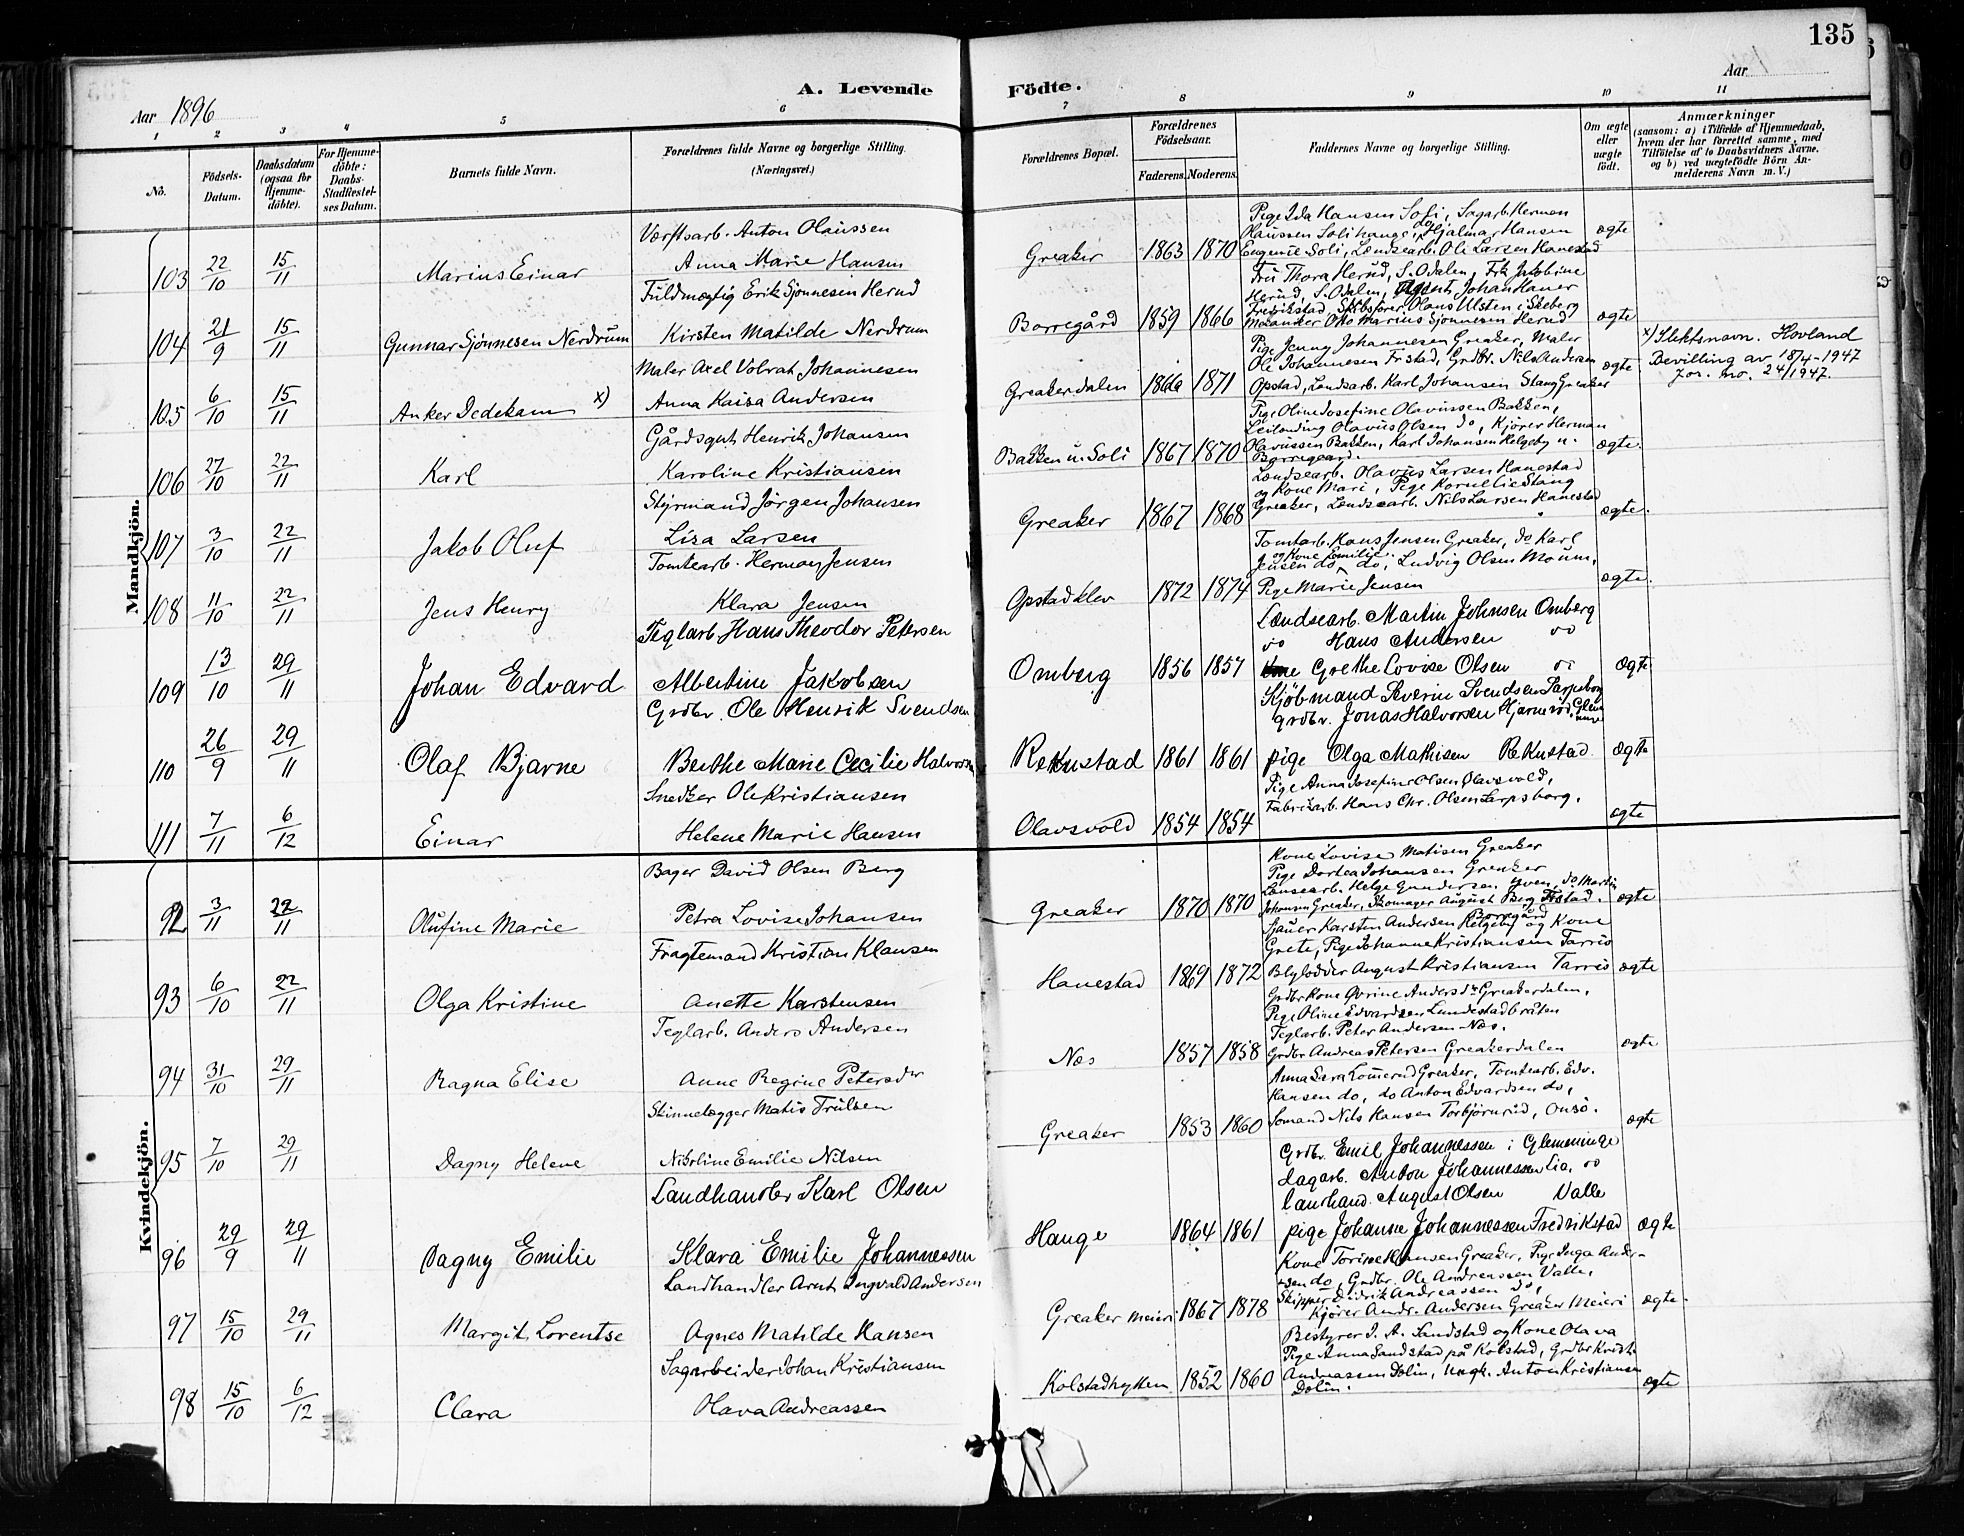 135
Aar 1896
A. Levende Födte.
Aar
1 2 3 4 5 6 7 8 9 10 11
No.
Födsels-Datum.
Daabsdatum (ogsaa for Hjemme-döbte).
For Hjemme-döbte: Daabs-Stadfæstel-ses Datum.
Barnets fulde Navn.
Forældrenes fulde Navne og borgerlige Stilling. (Næringsvei.)
Forældrenes Bopæl.
Forældrenes Födselsaar.
Faderens. Moderens.
Faddernes Navne og borgerlige Stilling.
Om ægte eller uægte født.
Anmærkninger
(saasom: a) i Tilfælde af Hjemmedaab, hvem der har forrettet samme, med Tilføielse af to Daabsvidners Navne. og b) ved uegtefödte Börn Anmelderens Navn m. V.)
Mandkjön.
103 22/10 15/11 Marius Einar
Værftsarb. Anton Olaussen
Anna Marie Hansen
Greaker 1863 1870
Pige Ida Hansen Soli, Sagarb. Herman
Olaussen Solihange, Hjalmar Hansen
Eugenie Soli, Lændsearb. Ole Larsen Hanestad
ægte
104 21/9 15/11 Gunnar Sjønnesen Nerdrum
Fuldmægtig Erik Sjønnesen Herud
Kirsten Matilde Nerdrum
Borregård 1859 1866
Fru Thora Herud, S. Odalen, Frk Jakobine
Herud, S. Odalen, Agent Johan Hauer
Fredrikstad, Skibsfører Olaus Ulsten i Skeberg
Mekaniker Otto Marius Sjønnesen Herud
ægte
105 6/10 15/11 Anker Dedekam x)
Maler Axel Volrat Johannesen
Anna Kaisa Andersen
Greakerdalen 1866 1871
Pige Jenny Johannesen Greaker, Maler
Ole Johannesen Fristad, Grdbr. Nils Andersen
Opstad, Lendsarb. Karl Johansen Stang Greaker
ægte
x) Slektsnavn. Hovland
Bevilling av 18/4-1947
Jor. no. 24/1947.
106 27/10 22/11 Karl
Gårdsgut Henrik Johansen
Karoline Kristiansen
Bakken u. Soli 1867 1870
Pige Oline Josefine Olavussen Bakken,
Leilænding Olavus Olsen do, Kjører Herman
Olavussen Bakken, Karl Johansen Helgeby u.
Borregaard.
ægte.
107 3/10 22/11 Jakob Oluf
Styrmand Jørgen Johansen
Lisa Larsen
Greaker 1867 1868
Lændsearb. Olavus Larsen Hanestad
og Kone Mari, Pige Kornelie Stang
Greaker, Lændsearb. Nils Larsen Hanestad
ægte.
108 11/10 22/11 Jens Henry
Tomtearb. Herman Jensen
Klara Jensen
Opstadklev 1872 1874
Tomtarb. Hans Jensen Greaker, do Karl
Jensen do og Kone Emilie do, Ludvig Olsen Moum,
Pige Marie Jensen
ægte.
109 13/10 29/11 Johan Edvard
Teglarb Hans Theodor Petersen
Albertine Jakobsen
Omberg 1856 1857
Lændsearb. Martin Johnsen Omberg
do Hans Andersen do
Grethe Lovise Olsen do
ægte
110 26/9 29/11 Olaf Bjarne
Grdbr. Ole Henrik Svendsen
Berthe Marie Cecilie Halvorsen
Rekustad 1861 1861
Kjöbmand Severin Svendsen Sarpsborg
grdbr. Jonas Halvorsen Hjarnerød, Glemminge
pige Olga Mathisen Rekustad
ægte
111 7/11 6/12 Einar
Snedker Ole Kristiansen
Helene Marie Hansen
Olavsvold 1854 1854
Pige Anna Josefine Olsen Olavsvold,
Fabrikarb. Hans Chr. Olsen Sarpsborg.
ægte
Kvindekjön.
92 3/11 22/11 Olufine Marie
Bager David Olsen Berg
Petra Lovise Johansen
Greaker 1870 1870
Kone Lovise Matisen Greaker
Pige Dortea Johansen Greaker
Lensearb. Helge Gundersen Yven, do Martin
Johansen Greaker, Skomager August Berg Fristad.
ægte
93 6/10 22/11 Olga Kristine
Fragtemand Kristian Klausen
Anette Karstensen
Hanestad 1869 1872
Sjauer Karsten Andersen Helgeby Borregård og Kone
Grete, Pige Johanne Kristiansen Tarris
August Kristiansen Tarris
ægte
94 31/10 29/11 Ragna Elise
Teglarb. Anders Andersen
Anne Regine Petersdr
Næs 1857 1858
Grdbr Kone Gurine Andersdr Greakerdalen,
Pige Oline Edvardsen Lundestadbråten
Teglarb. Peter Andersen Næs.
Grdbr Andreas Petersen Greakerdalen
ægte
95 7/10 29/11 Dagny Helene
Skinnelægger Matis Trulsen
Nikoline Emilie Nilsen
Greaker 1853 1860
Anna Sara Greaker, Tomtearb. Edv.
Hansen do, do Anton Edvardsen do,
Sømand Nils Hansen Torbjørnrød, Onsö.
ægte
96 29/9 29/11 Dagny Emilie
Landhandler Karl Olsen
Klara Emilie Johannessen
Hauge 1864 1861
Grdbr. Emil Johannessen i Glemminge
dagarb. Anton Johannessen Lia, do
landhand. August Olsen Valle
pige Johanne Johannessen Fredrikstad
ægte
97 15/10 29/11 Margit Lorentse
Landhandler Arnt Ingvald Andersen
Agnes Matilde Hansen
Greaker Meieri 1867 1878
Kone Torine Hansen Greaker, Pige Inga Ander-
sen do, Grdbr. Ole Andreassen Valle,
Skipper Didrik Andreassen do,
Kjører Andr. Andersen Greaker Meieri
ægte.
98 15/10 6/12 Clara
Sagarbeider Johan Kristiansen
Olava Andreassen
Kolstadhytten 1852 1860
Bestyrer J. A. Sandstad og Kone Olava
Pige Anna Sandstad på Kolstad, Grdbr Kristi
Andreassen Dolin, Ungk. Anton Kristiansen
Dolin.
ægte